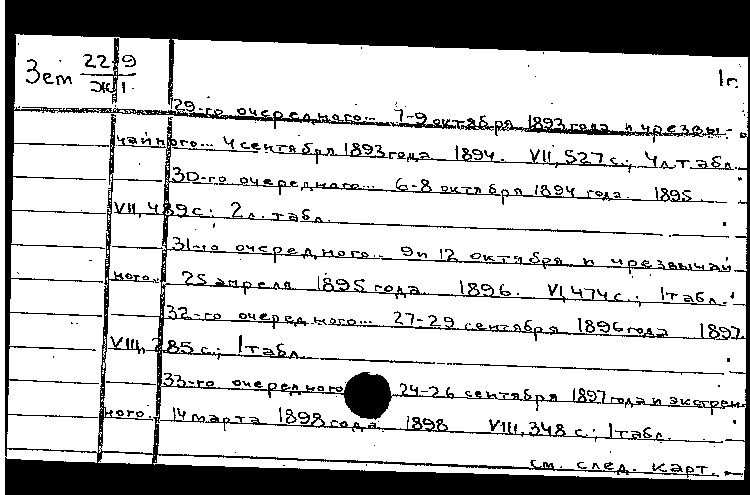 Зет 22/Ж 9/1 1г.
29-го очередного... 7-9 октября 1893 года и чрезвы-
чайного... 4 сентября 1893 года 1894. VII, 527 с.; 4 л. табл.
30-го очередного... 6-8 октября 1894 года 1895
VII, 489 с.; 2 л. табл.
31-го очередного... 9 и 12 октября и чрезвычай
ного... 25 апреля 1895 года 1896. VI, 474 с.; 1 табл.
32-го очередного... 27-29 сентября 1896 года 1897
VIII, 285 с.; 1 табл.
33-го очередного 24-26 сентября 1897 года и экстрен
ного... 14 марта 1898 года 1898 VIII, 348 с.; 1 табл.
см. след. карт.